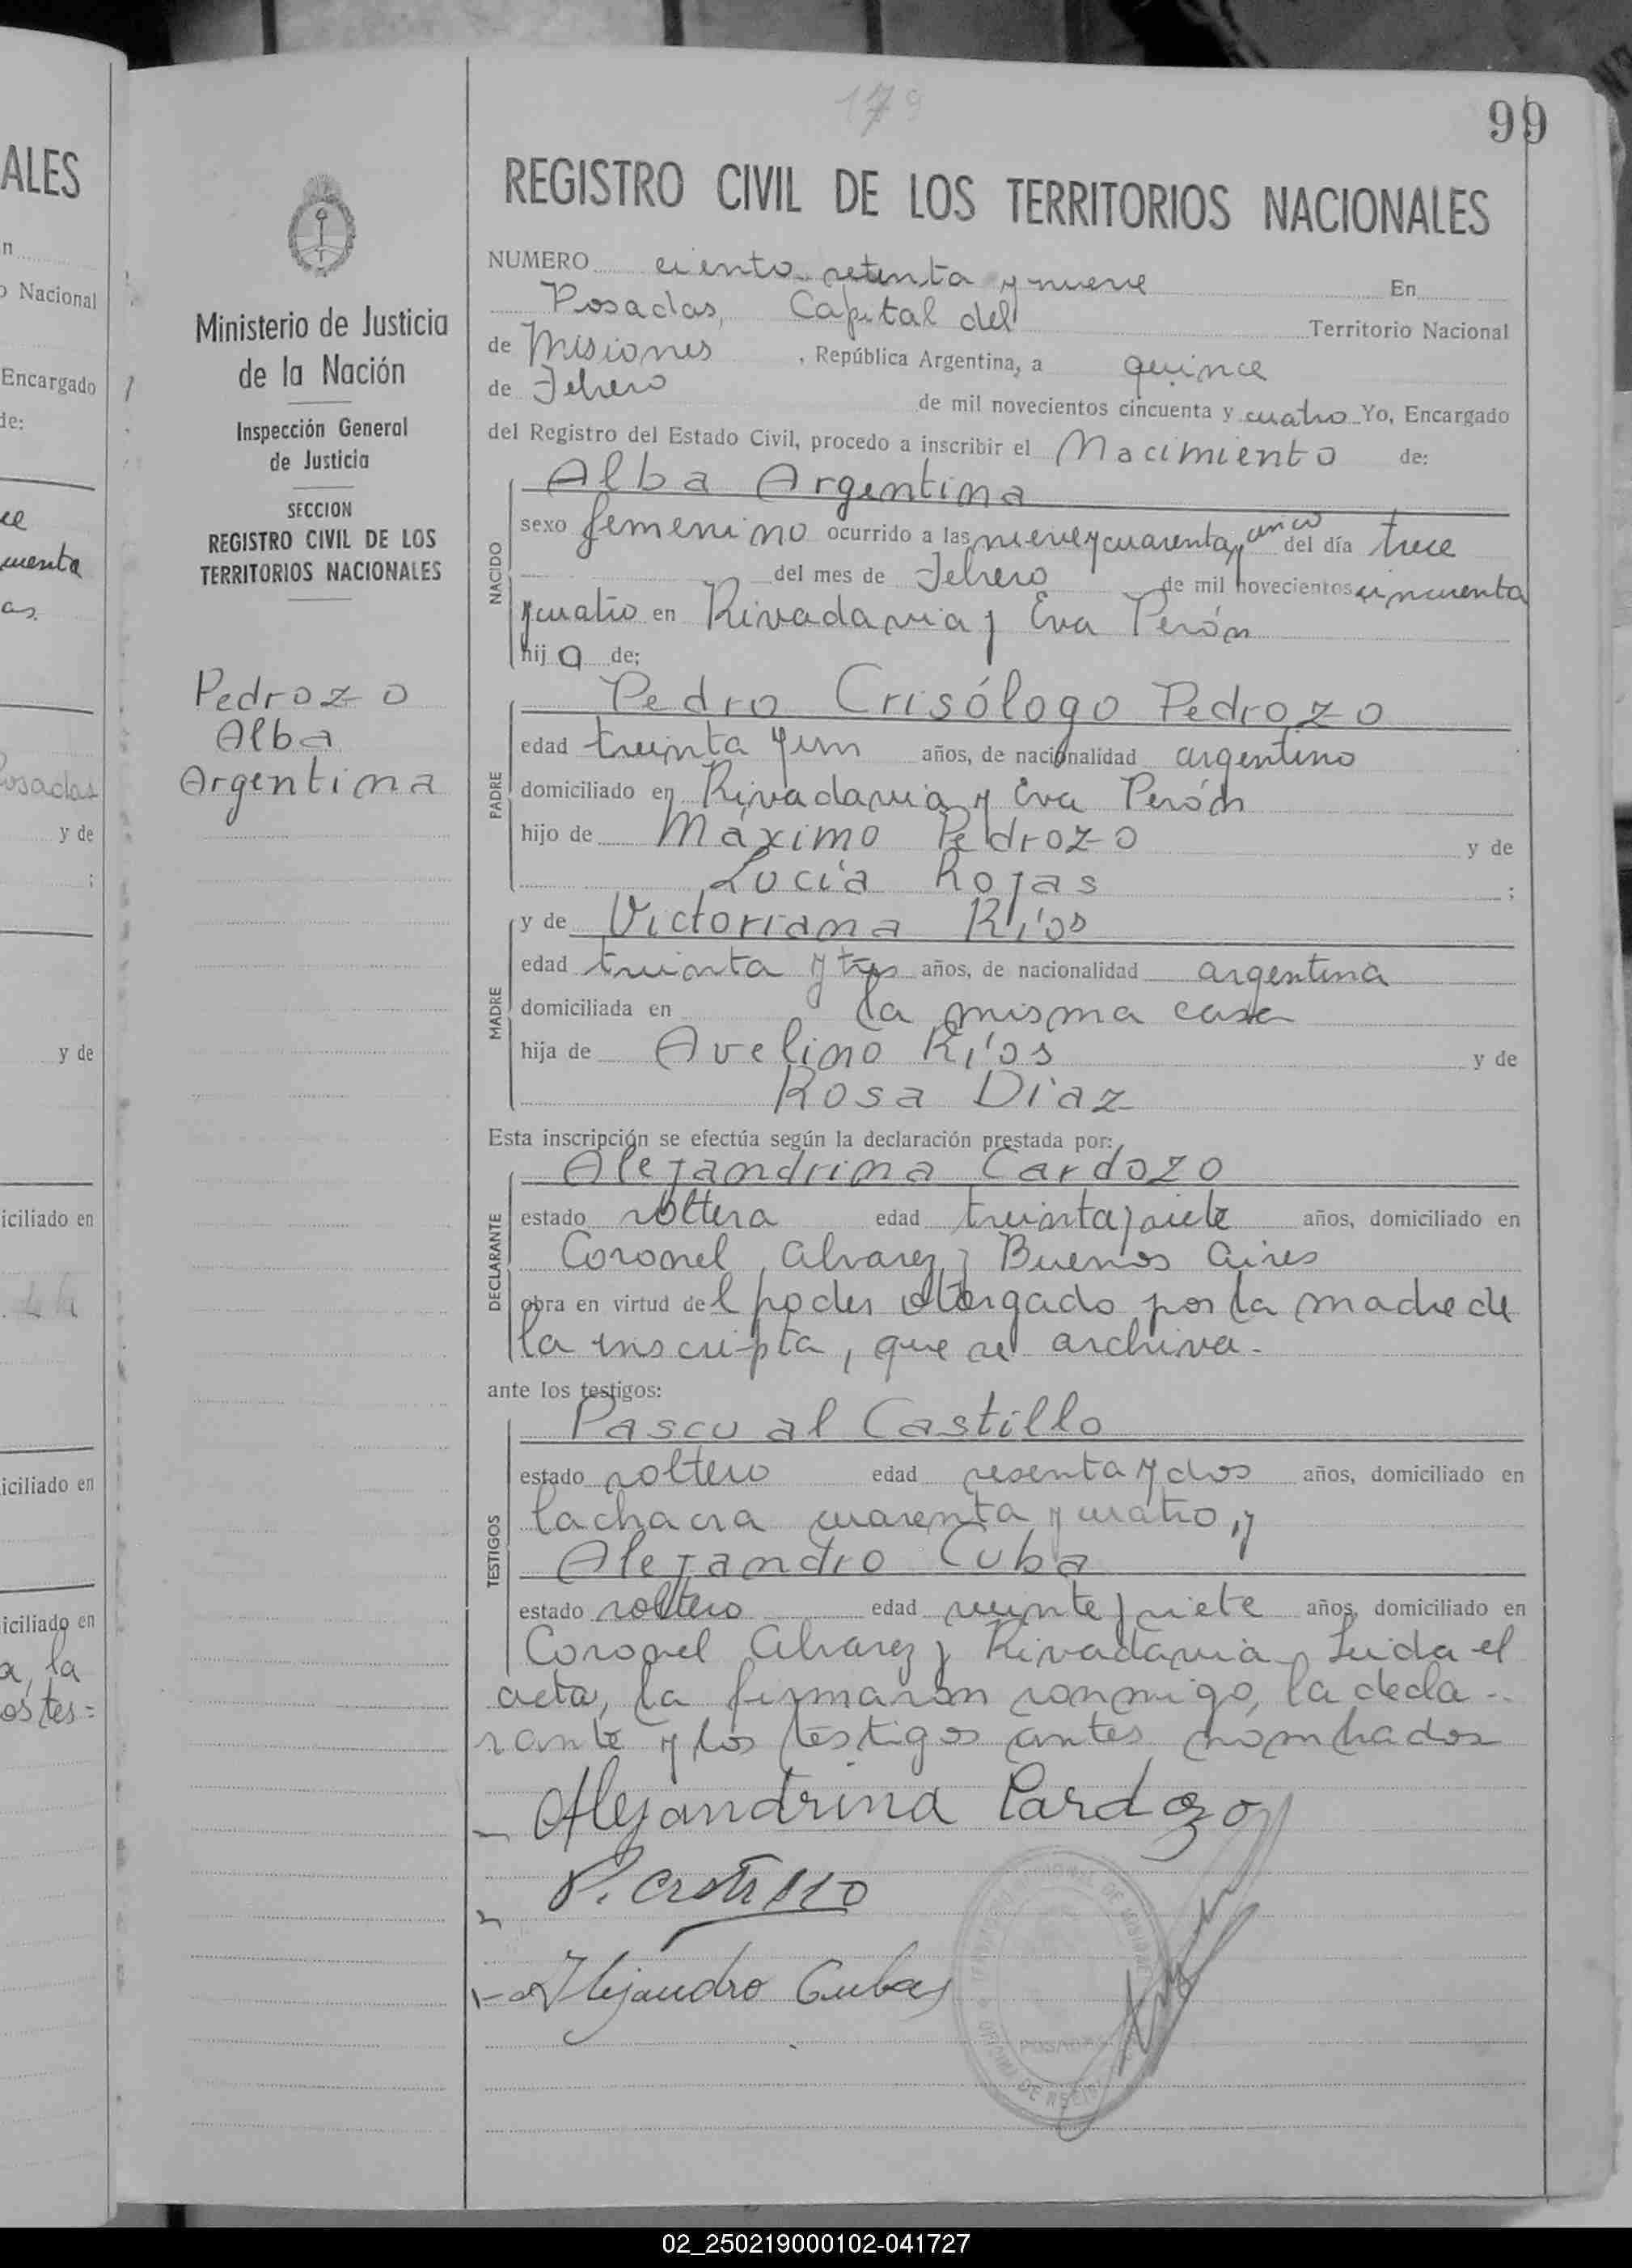 ALES
n
o Nacional
Encargado
de:
ce
cuenta
as.
Posadas
y de
;
y de
iciliado en
iciliado en
iciliado en
a, la
os tes=
Ministerio de Justicia
de la Nación
Inspección General
de Justicia
SECCION
REGISTRO CIVIL DE LOS
TERRITORIOS NACIONALES
Pedrozo
Alba
Argentina
179
99
REGISTRO CIVIL DE LOS TERRITORIOS NACIONALES
NUMERO ciento setenta y nueve En
Posadas, Capital del Territorio Nacional
de Misiones, República Argentina, a quince
de Febrero de mil novecientos cincuenta y cuatro Yo, Encargado
del Registro del Estado Civil, procedo a inscribir el Nacimiento de:
NACIDO
Alba Argentina
sexo femenino ocurrido a las nueve y cuarenta y cinco del día trece
del mes de Febrero de mil novecientos cincuenta
y cuatro en Rivadavia y Eva Perón
hija de:
PADRE
Pedro Crisólogo Pedrozo
edad treinta y un años, de nacionalidad argentino
domiciliado en Rivadavia y Eva Perón
hijo de Máximo Pedrozo y de
Lucía Rojas ;
MADRE
y de Victoriana Ríos
edad treinta y tres años, de nacionalidad argentina
domiciliada en la misma casa
hija de Avelino Ríos y de
Rosa Díaz
Esta inscripción se efectúa según la declaración prestada por:
DECLARANTE
Alejandrina Cardozo
estado soltera edad treinta y siete años, domiciliado en
Coronel Alvarez y Buenos Aires
obra en virtud del poder otorgado por la madre de
la inscripta, que se archiva.
ante los testigos:
TESTIGOS
Pascual Castillo
estado soltero edad sesenta y dos años, domiciliado en
la chacra cuarenta y cuatro, y
Alejandro Cuba
estado soltero edad veinte y siete años, domiciliado en
Coronel Alvarez y Rivadavia Leida el
acta, la firmaron conmigo, la decla-
rante y los testigos antes nombrados
Alejandrina Cardozo
P. Castillo
Alejandro Cubas
POSADAS
02_250219000102-041727